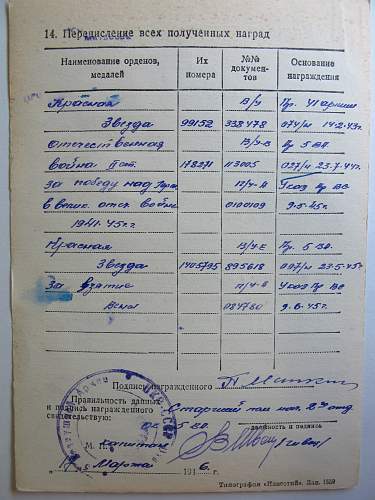 14. Перечисление всех полученных наград
Наименование орденов, медалей
Их номера
№№ документов
Основание награждения
Красная В/У Пр. 4 армии
Звезда 99152 338478 074/н 14-2-43г.
Отечественная В/У-В Пр 5 ВА.
война IIст. 178271 113005 027/н 23-7-44г.
За победу над П/У-А Указ Пр ВС
в велик. отеч. войне 0100109 9-5-45г.
1941-45г.г.
Красная В/У-Е Пр. 5 ВА.
Звезда 1405795 895618 23-5-45г
За взятие п/у-А Указ Пр ВС
Вены 084760 9-6-45г.
Подпись награжденного
Правильность данных
и подпись награжденного
свидетельствую:
Старший
5 ВА
должность и подпись
М. П. капитан
Марта 1946 г.
Типография «Известий». Зак. 1559